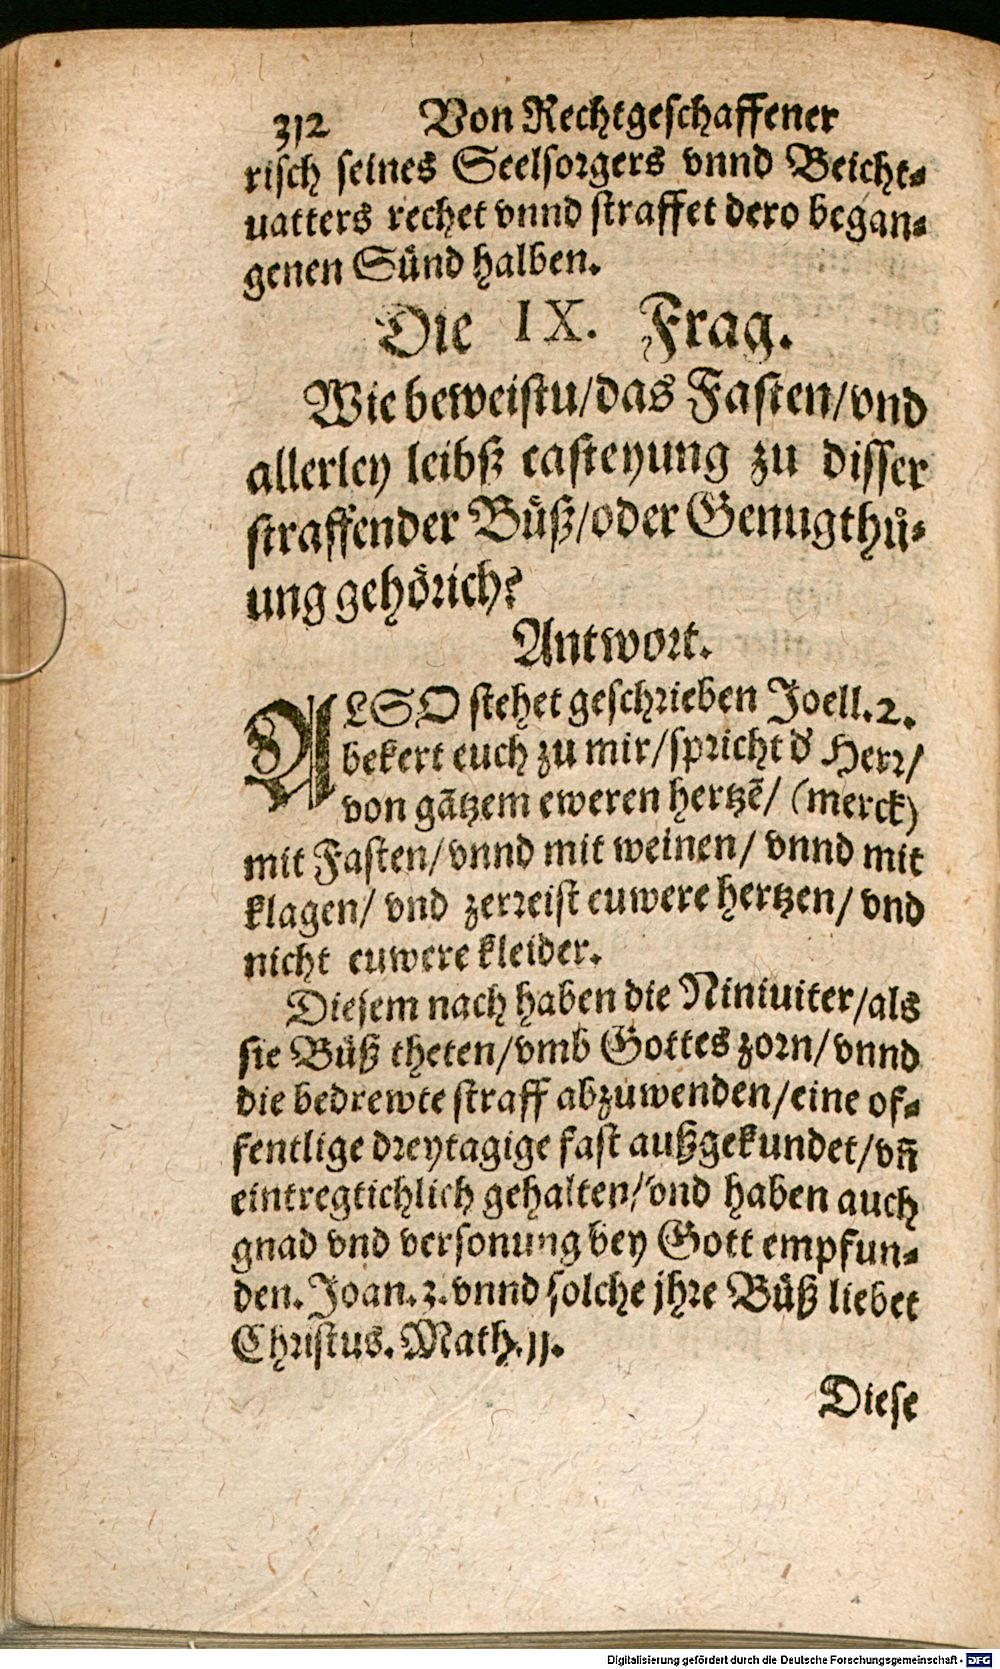 312 Von Rechtgeschaffener
risch seines Seelsorgers vnnd Beicht-
uatters rechet vnnd straffet dero began-
genen Sünd halben.
Die IX. Frag.
Wie beweistu/das Fasten/vnd
allerley leibß casteyung zu disser
straffender Bůß/oder Genugthů-
ung gehörich?
Antwort.
ALSO stehet geschrieben Joell.2.
bekert euch zu mir/spricht d Herr/
von gãtzem eweren hertzẽ/ (merck)
mit Fasten/vnnd mit weinen/ vnnd mit
klagen/ vnd zerreist euwere hertzen/ vnd
nicht euwere kleider.
Diesem nach haben die Niniuiter/als
sie Bůß theten/vmb Gottes zorn/vnnd
die bedrewte straff abzuwenden/eine of-
fentlige dreytagige fast außgekundet/vñ
eintregtichlich gehalten/vnd haben auch
gnad vnd versonung bey Gott empfun-
den. Joan.3.vnnd solche jhre Bůß liebet
Christus. Math.11.
Diese
Digitalisierung gefördert durch die Deutsche Forschungsgemeinschaft - DFG